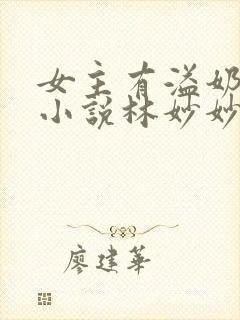 女主有溢奶
小说林妙妙
廖建华